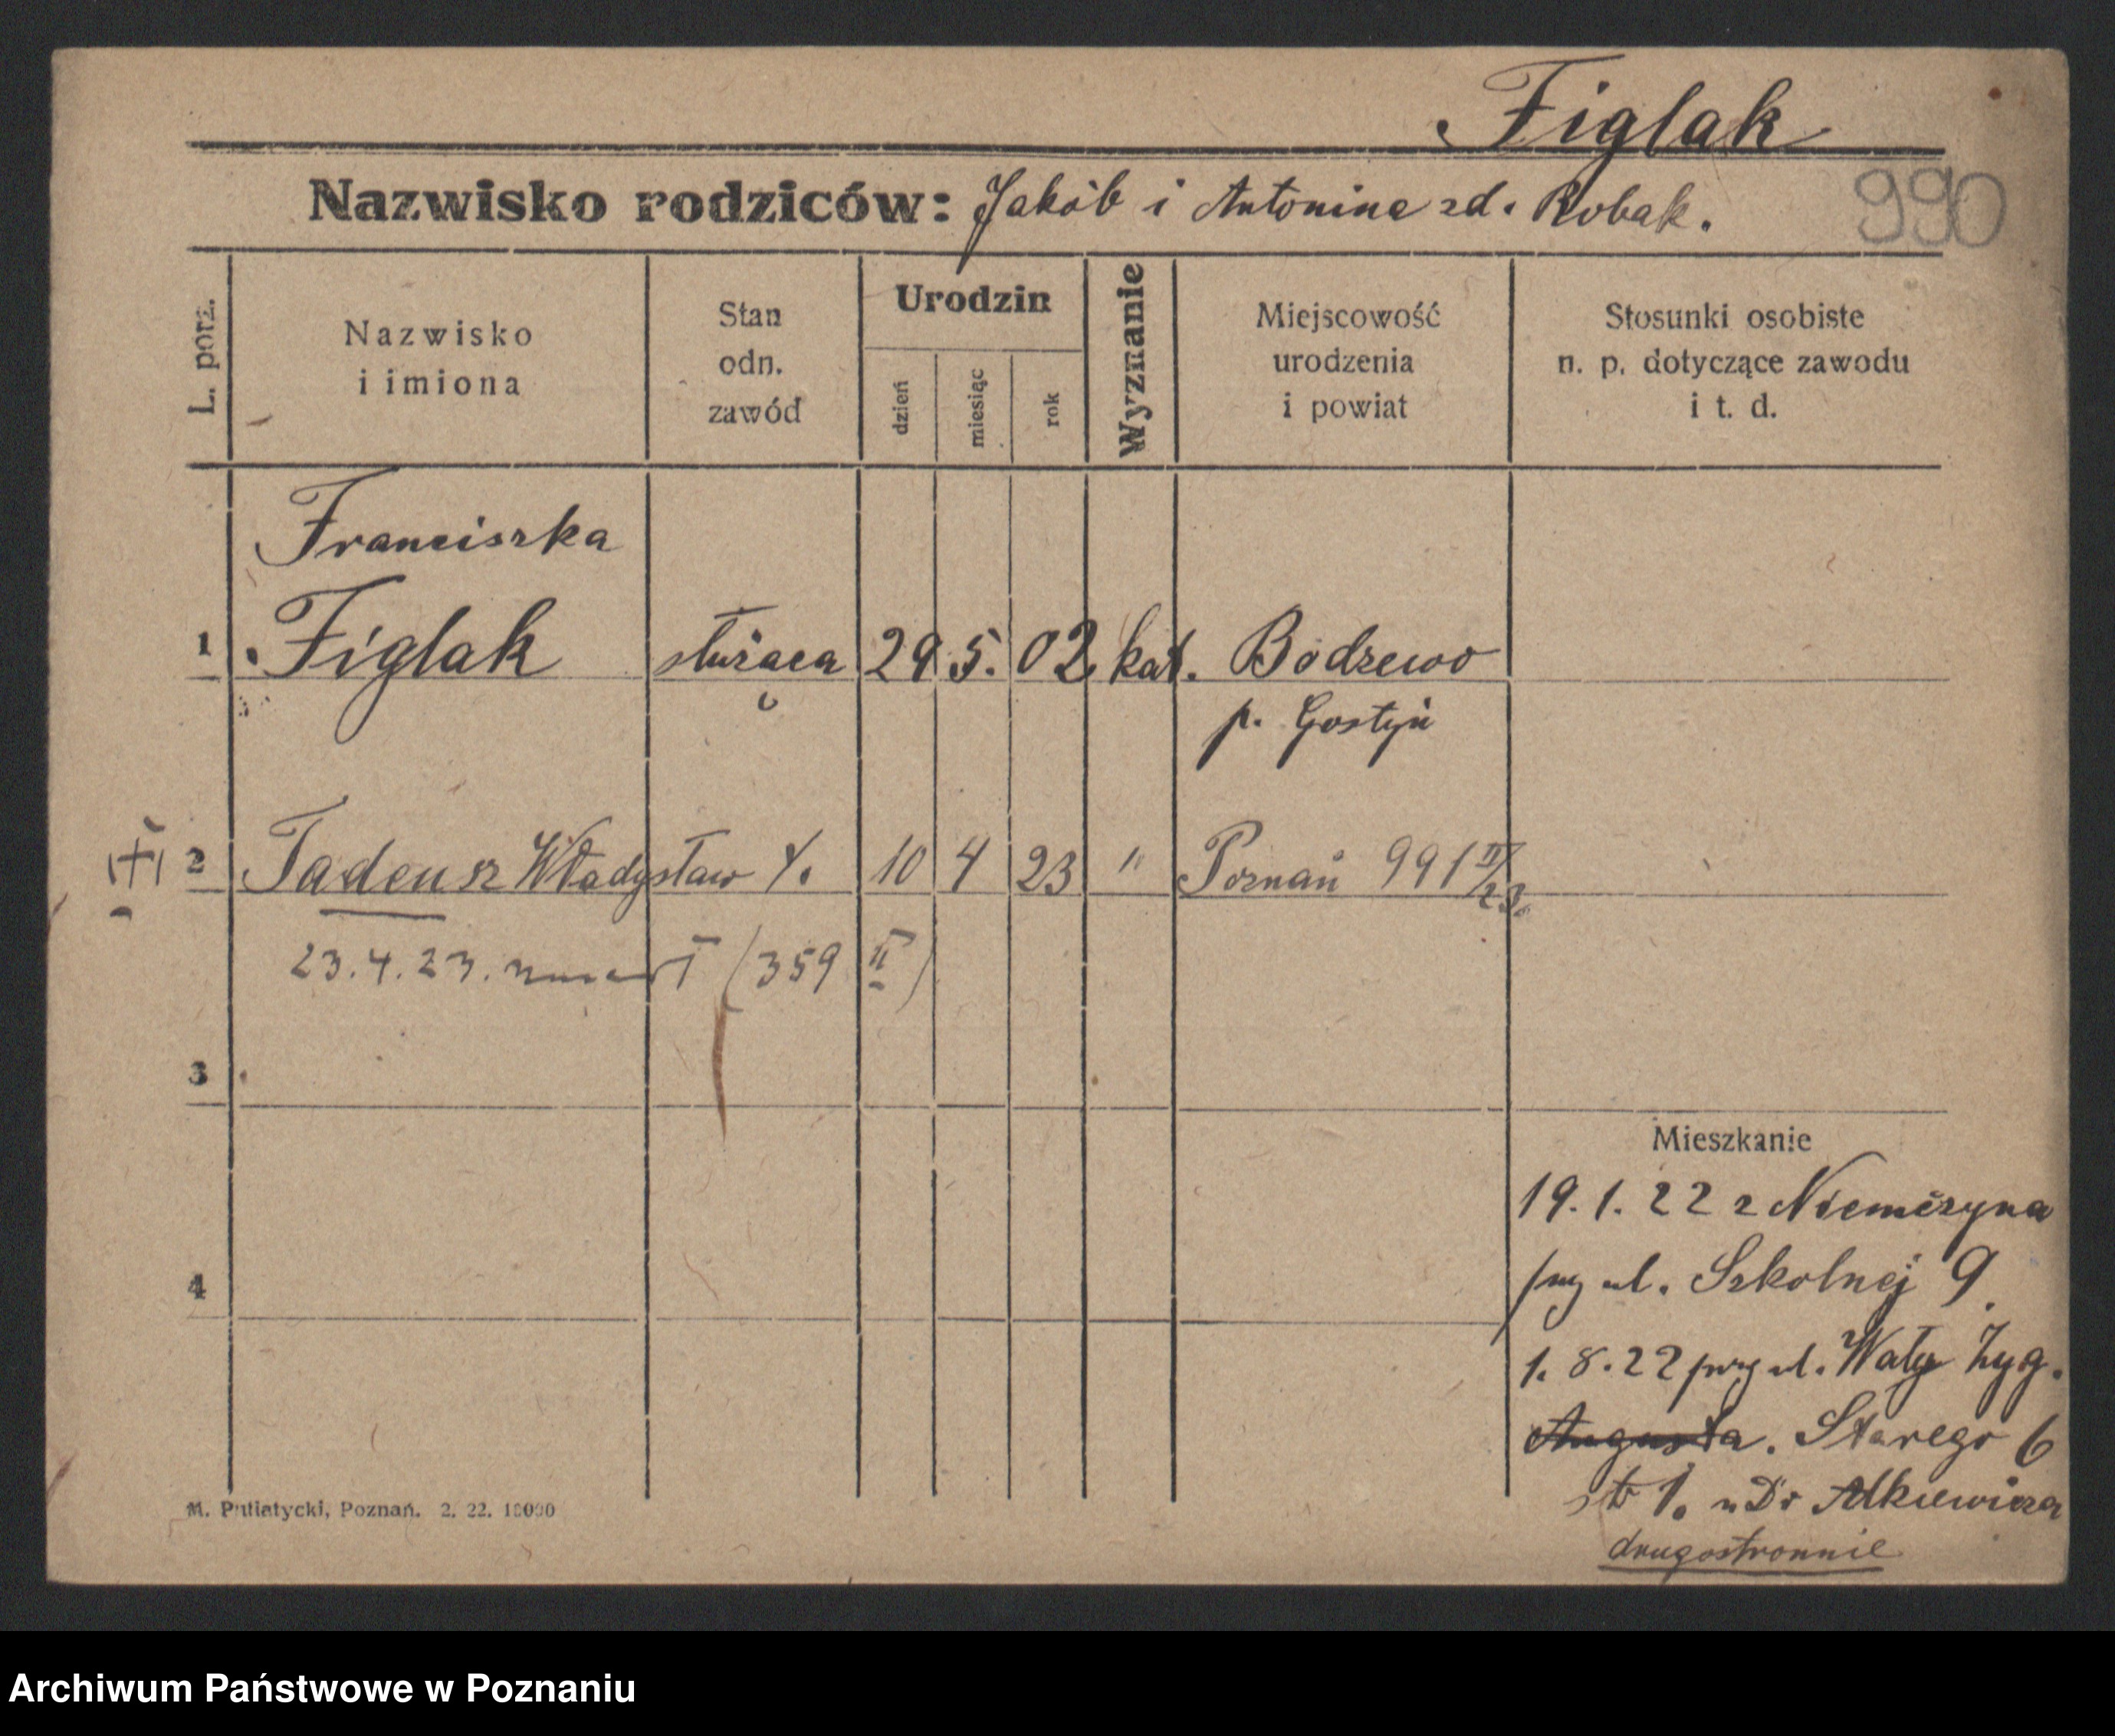 Figlak
Nazwisko rodziców: Jakób i Antonina zd. Robak.
990
L. porz.
Nazwisko
i imiona
Stan
odn.
zawód
Urodzin
dzień
miesiąc
rok
Wyznanie
Miejscowość
urodzenia
i powiat
Stosunki osobiste
n. p. dotyczące zawodu
i t. d.
Franciszka
1 Figlak służąca 29 5. 02 kat. Bodzewo
p. Gostyń
2 Tadeusz Władysław 10 4 23 " Poznań 991 II/23.
23.4.23. zmarł (359 II)
3
4
Mieszkanie
19.1.22 z Niemczyna
przy ul. Szkolnej 9.
1.8.22 przy ul. Wały Zyg.
Augusta. Starego 6
u Dr Alkiewicza
drugostronnie
M. Putiatycki, Poznań. 2. 22. 10000
Archiwum Państwowe w Poznaniu